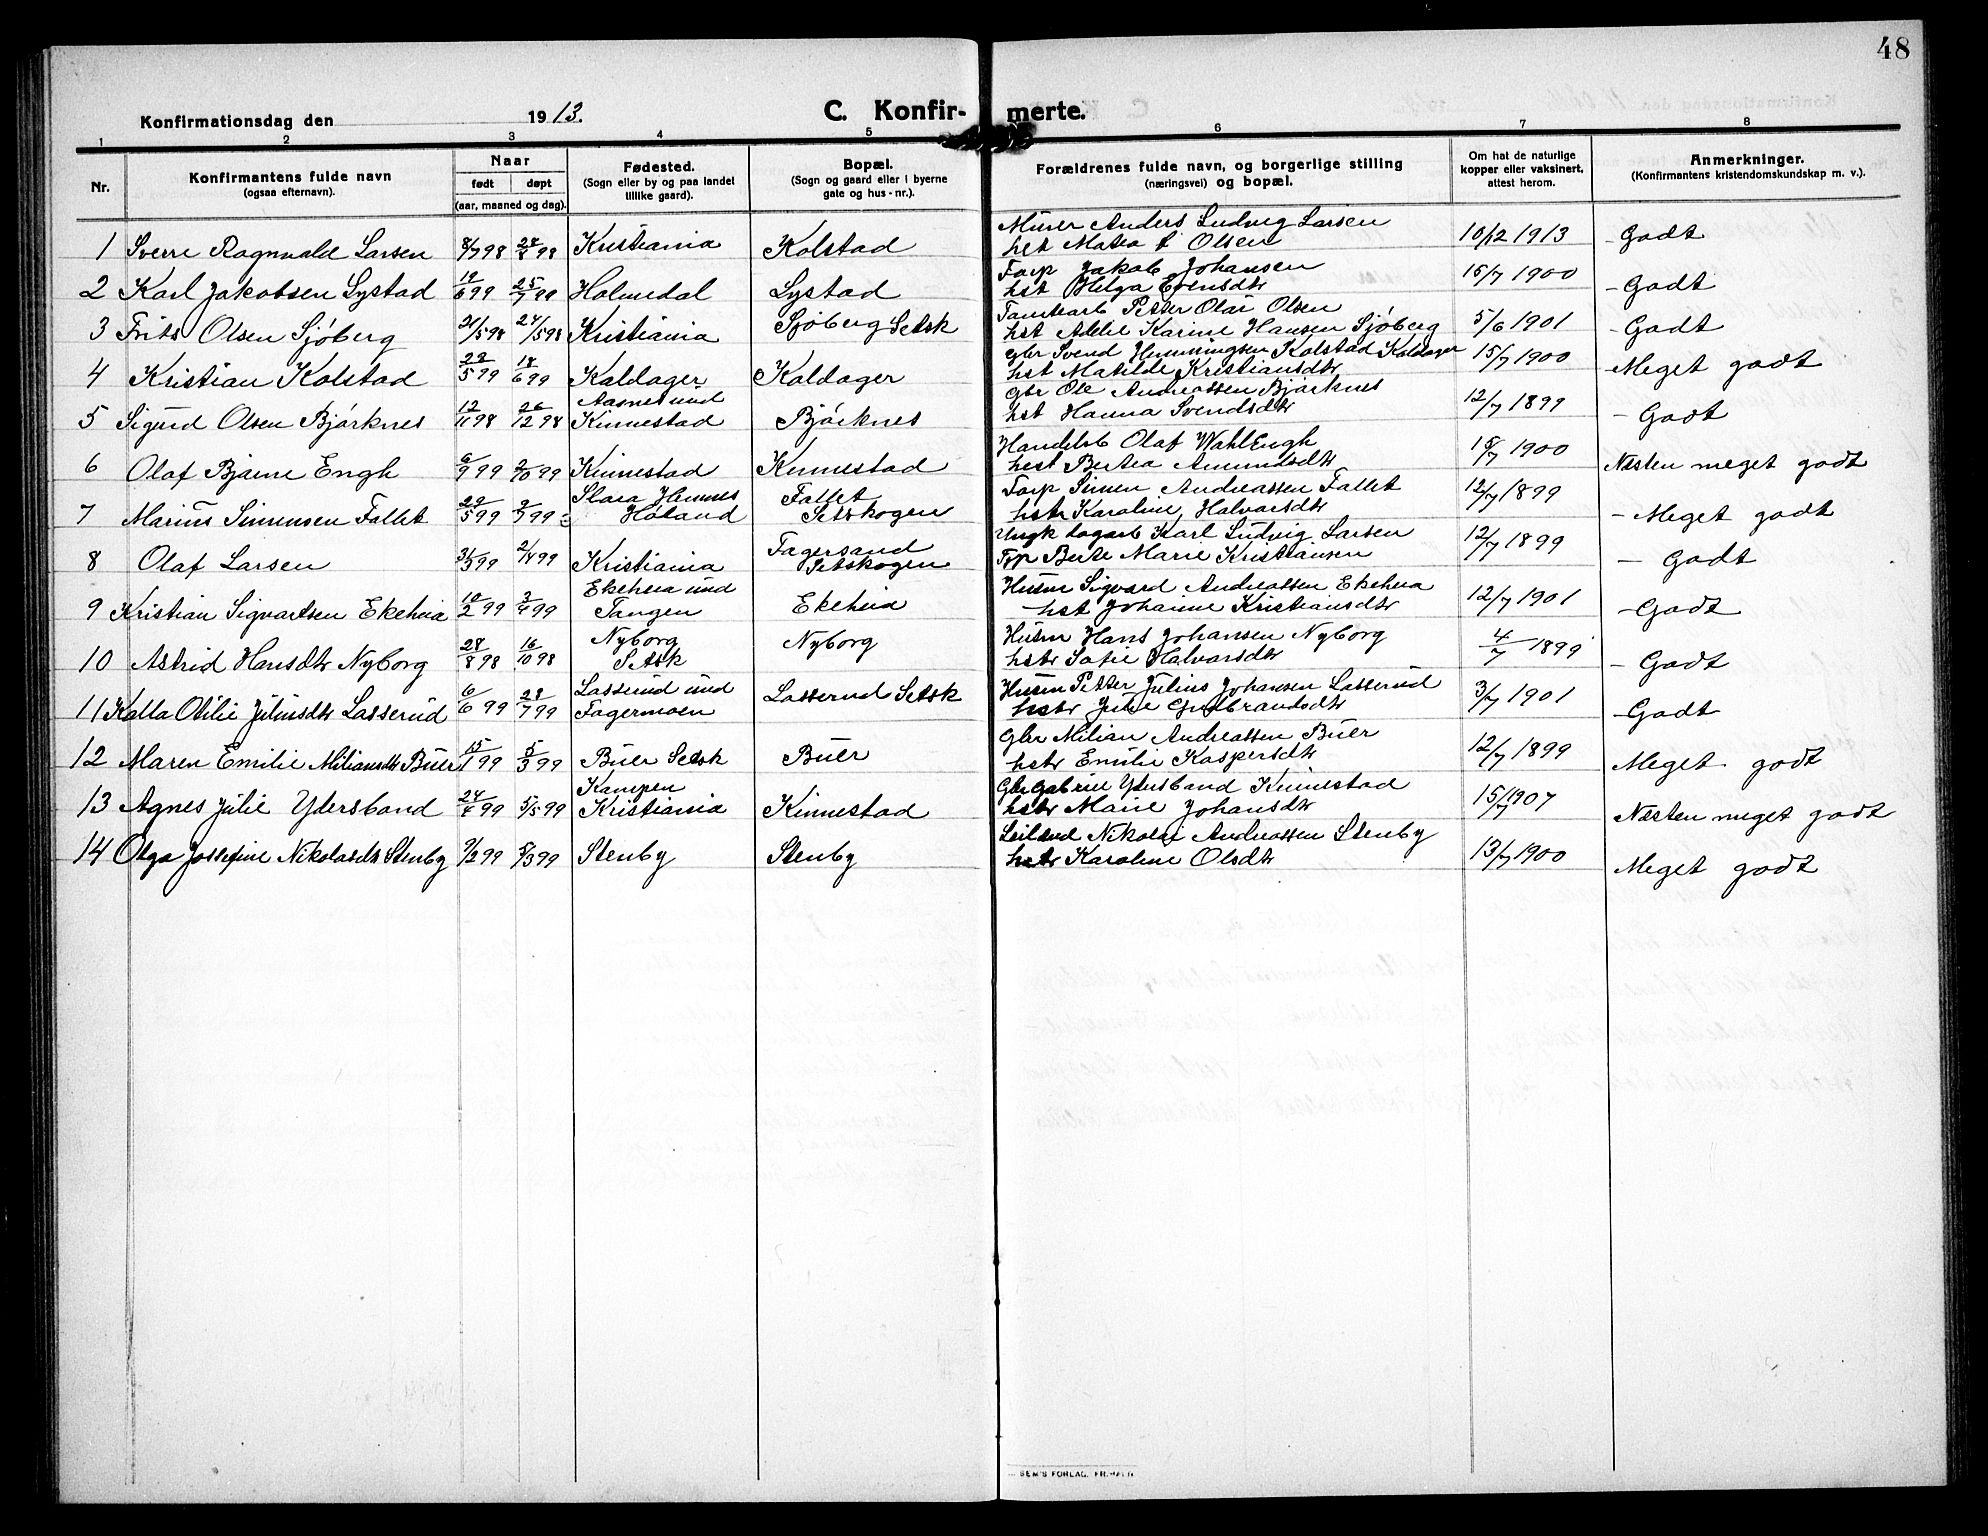 48
Konfirmationsdag den 1913.
C. Konfirmerte.
1 2 3 4 5 6 7 8
Nr.
Konfirmantens fulde navn
(ogsaa efternavn).
Naar
født døpt
(aar, maaned og dag).
Fødested.
(Sogn eller by og paa landet
tillike gaard).
Bopæl.
(Sogn og gaard eller i byerne
gate og hus-nr.).
Forældrenes fulde navn, og borgerlige stilling
(næringsvei) og bopæl.
Om hat de naturlige
kopper eller vaksinert,
attest herom.
Anmerkninger.
(Konfirmantens kristendomskundskap m. v.).
Murer Anders Ludvig Larsen
1 Sverre Ragnvald Larsen 8/7 98 98 Kristiania Kolstad hst Matea Olsen 10/12 1913 - Godt
Forp Jakob Johansen
2 Karl Jakobsen Lystad 19/6 99 25/7 99 Holmedal Lystad hst Helga Evensdtr 15/7 1900 - Godt
Petter Olai Olsen
3 Frits Olsen Sjöberg 21/5 98 24/5 98 Kristiania Sjöberg Setsk hst Adele Karine Hansen Sjöberg 5/6 1901 - Godt
gbr Svend Henningsen Kolstad Kaldager
4 Kristian Kolstad 29/5 99 18/6 99 Kaldager Kaldager hst Matilde Kristiansdtr 15/7 1900 Meget godt
Aasnes und gbr Ole Andreassen Björknes
5 Sigurd Olsen Björknes 12/11 98 26/12 98 Kinnestad Björknes hst Hanna Svendsdtr 12/7 1899 - Godt
Handelsb Olaf Wahl Engh
6 Olaf Bjarne Engh 6/9 99 2/10 99 Kinnestad Kinnestad hst Bertea Amundsdtr 18/7 1900 Næsten meget godt
Slara Hemnes Fallet Forp Simen Andreassen Fallet
7 Marius Simensen Fallet 29/5 99 2/7 99 Höland Setskogen hstr Karoline Halvorsdtr 12/7 1899 - Meget godt
Fagersand Ungk dagarb Karl Ludvig Larsen
8 Olaf Larsen 31/3 99 2/4 99 Kristiania Setskogen Fpp Berte Marie Kristiansen 12/7 1899 - Godt
Ekeheia und Husm Sigvard Andreassen Ekeheia
9 Kristian Sigvartsen Ekeheia 10/2 99 3/4 99 Tangen Ekeheia hst Johanne Kristiansdtr 12/7 1901 - Godt
Nyborg Husm Hans Johansen Nyborg
10 Astrid Hansdtr Nyborg 28/8 98 16/10 98 Setsk Nyborg hstr Sofie Halvorsdtr 4/7 1899 - Godt
Lasserud und Husm Petter Julius Johansen Lasserud
11 Kalla Otilie Juliusdtr Lasserud 6/6 99 29/7 99 Fagermoen Lasserud Setsk hstr Julie Gulbrandsdtr 3/7 1901 - Godt
Gbr Milian Andreassen Buer
12 Maren Emilie Miliansdtr Buer 15/1 99 5/3 99 Buer Setsk Buer hstr Emilie Kaspersdtr 12/7 1899 Meget godt
Kampen Gbr Gabriel Ydersbond Kinnestad
13 Agnes Julie Ydersbond 24/ 99 5/5 99 Kristiania Kinnestad hstr Marie Johansdtr 15/7 1907 Næsten meget godt
Leilænd Nikolai Andreassen Stenby
14 Olga Josefine Nikolaidtr Stenby 7/2 99 5/3 99 Stenby Stenby hstr Karoline Olsdtr 13/7 1900 Meget godt
SEM'S FORLAG. FR.HALD